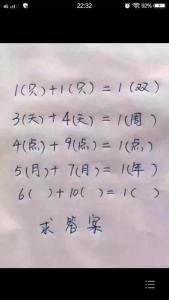 4G 22:32 92%
1(只)+1(只)=1(双)
3(天)+4(天)=1(周)
4(点)+9(点)=1(点)
5(月)+7(月)=1(年)
6( )+10( )=1( )
求答案